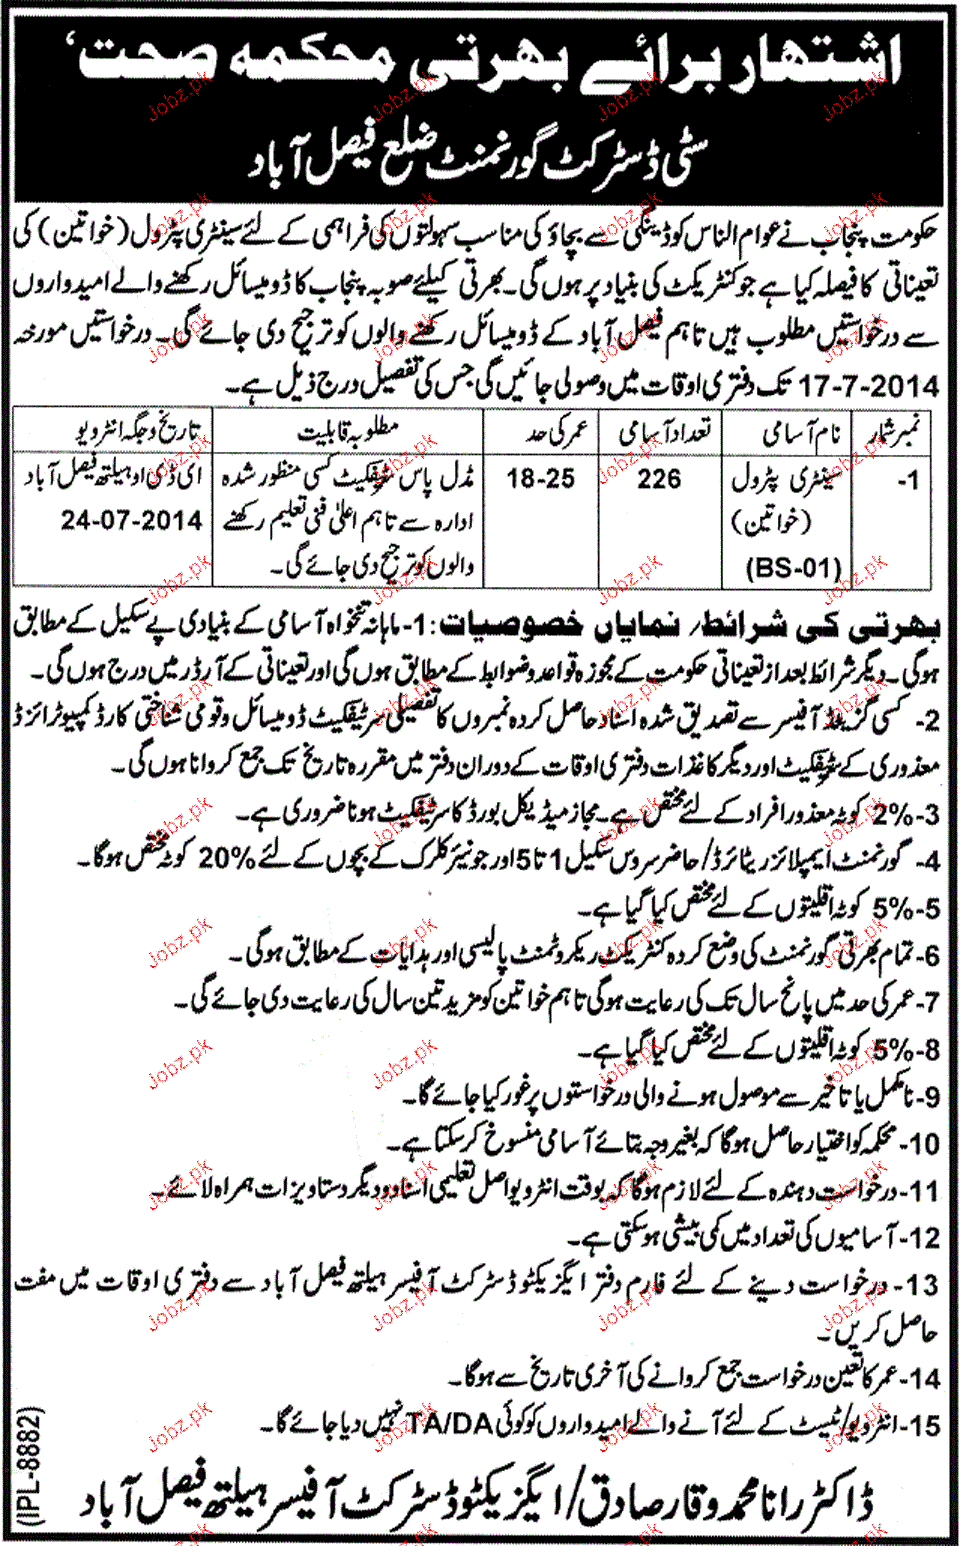 اشتہار برائے بھرتی محکمہ صحت‘
سٹی ڈسٹرکٹ گورنمنٹ ضلع فیصل آباد
حکومت پنجاب نے عوام الناس کو ڈینگی سے بچاؤ کی مناسب سہولتوں کی فراہمی کے لئے سینٹری پٹرول (خواتین) کی
تعیناتی کا فیصلہ کیا ہے جو کنٹریکٹ کی بنیاد پر ہوں گی۔ بھرتی کیلئے صوبہ پنجاب کا ڈومیسائل رکھنے والے امیدواروں
سے درخواستیں مطلوب ہیں تاہم فیصل آباد کے ڈومیسائل رکھنے والوں کو ترجیح دی جائے گی۔ درخواستیں مورخہ
17-7-2014 تک دفتری اوقات میں وصولی جائیں گی جس کی تفصیل درج ذیل ہے۔
نمبر شمار	نام آسامی	تعداد آسامی	عمر کی حد	مطلوبہ قابلیت	تاریخ و جگہ انٹرویو
1-	سینٹری پٹرول	226	18-25	مڈل پاس سرٹیفکیٹ کسی منظور شدہ	ای ڈی او ہیلتھ فیصل آباد
(خواتین)	ادارہ سے تاہم اعلیٰ فنی تعلیم رکھنے	24-07-2014
(BS-01)	والوں کو ترجیح دی جائے گی۔
بھرتی کی شرائط/ نمایاں خصوصیات: 1- ماہانہ تنخواہ آسامی کے بنیادی پے سکیل کے مطابق
ہوگی۔ دیگر شرائط بعد از تعیناتی حکومت کے مجوزہ قواعد و ضوابط کے مطابق ہوں گی اور تعیناتی کے آرڈر میں درج ہوں گی۔
2- کسی گزیٹڈ آفیسر سے تصدیق شدہ اسناد حاصل کردہ نمبروں کا تفصیلی سرٹیفکیٹ ڈومیسائل و قومی شناختی کارڈ کمپیوٹرائزڈ
معذوری کے سرٹیفکیٹ اور دیگر کاغذات دفتری اوقات کے دوران دفتر میں مقررہ تاریخ تک جمع کروانا ہوں گی۔
3- 2% کوٹہ معذور افراد کے لئے مختص ہے۔ مجاز میڈیکل بورڈ کا سرٹیفکیٹ ہونا ضروری ہے۔
4- گورنمنٹ ایمپلائز ریٹائرڈ/حاضر سروس سکیل 1 تا 5 اور جونیئر کلرک کے بچوں کے لئے 20% کوٹہ مختص ہوگا۔
5- 5% کوٹہ اقلیتوں کے لئے مختص کیا گیا ہے۔
6- تمام بھرتی گورنمنٹ کی وضع کردہ کنٹریکٹ ریکروٹمنٹ پالیسی اور ہدایات کے مطابق ہوگی۔
7- عمر کی حد میں پانچ سال تک کی رعایت ہوگی تاہم خواتین کو مزید تین سال کی رعایت دی جائے گی۔
8- 5% کوٹہ اقلیتوں کے لئے مختص کیا گیا ہے۔
9- نامکمل یا تاخیر سے موصول ہونے والی درخواستوں پر غور کیا جائے گا۔
10- محکمہ کو اختیار حاصل ہوگا کہ بغیر وجہ بتائے آسامی منسوخ کر سکتا ہے۔
11- درخواست دہندہ کے لئے لازم ہوگا کہ بوقت انٹرویو اصل تعلیمی اسناد و دیگر دستاویزات ہمراہ لائے۔
12- آسامیوں کی تعداد میں کمی بیشی ہو سکتی ہے۔
13- درخواست دینے کے لئے فارم دفتر ایگزیکٹو ڈسٹرکٹ آفیسر ہیلتھ فیصل آباد سے دفتری اوقات میں مفت
حاصل کریں۔
14- عمر کا تعین درخواست جمع کروانے کی آخری تاریخ سے ہوگا۔
15- انٹرویو/ٹیسٹ کے لئے آنے والے امیدواروں کو کوئی TA/DA نہیں دیا جائے گا۔
ڈاکٹر رانا محمد وقار صادق/ ایگزیکٹو ڈسٹرکٹ آفیسر ہیلتھ فیصل آباد
(IPL-8882)
Jobz.pk